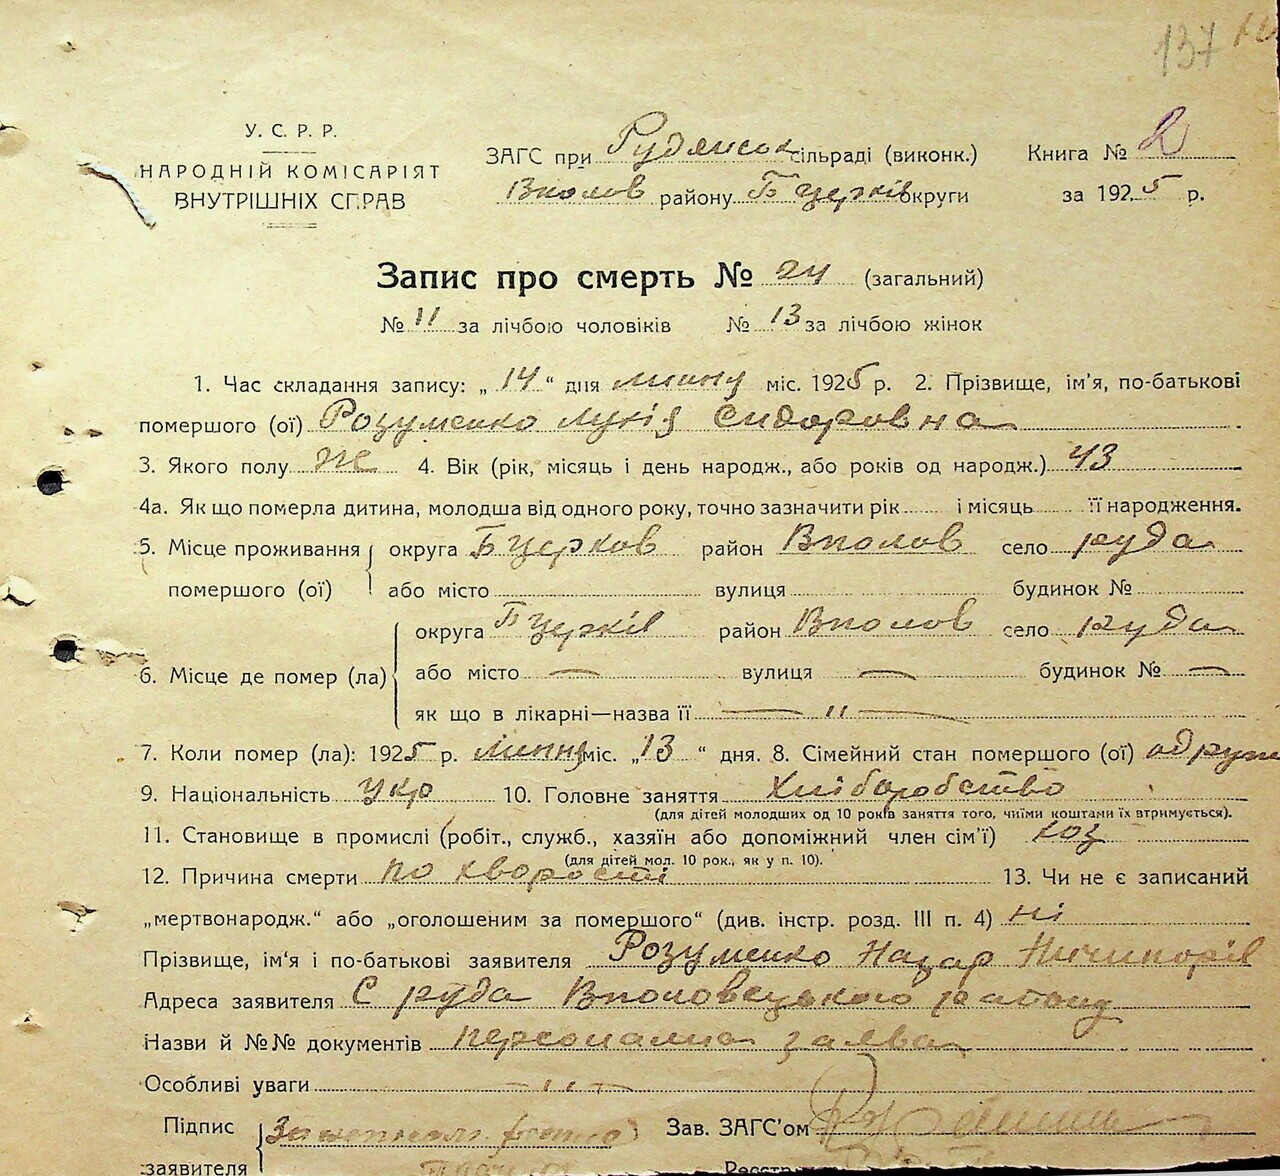 137
У. С. Р. Р.
НАРОДНІЙ КОМІСАРІЯТ
ВНУТРІШНІХ СПРАВ
ЗАГС при Рудянськ сільраді (виконк.) Книга № 2
Вполов району Б церків округи за 1925 р.
Запис про смерть № 24 (загальний)
№ 11 за лічбою чоловіків № 13 за лічбою жінок
1. Час складання запису: „ 14 “ дня липня міс. 1925 р. 2. Прізвище, ім'я, по-батькові
помершого (ої) Розуменко Лукія Сидоровна
3. Якого полу Ж 4. Вік (рік, місяць і день народж., або років од народж.) 43
4а. Як що померла дитина, молодша від одного року, точно зазначити рік і місяць її народження.
5. Місце проживання округа Б церков район Вполов село руда
помершого (ої) або місто вулиця будинок №
округа Б церків район Вполов село руда
6. Місце де помер (ла) або місто — вулиця — будинок № —
як що в лікарні—назва її — „ —
7. Коли помер (ла): 1925 р. липня міс. „13 “ дня. 8. Сімейний стан помершого (ої) одруж
9. Національність укр 10. Головне заняття Хліборобство
(для дітей молодших од 10 років заняття того, чиїми коштами їх втримується).
11. Становище в промислі (робіт., служб., хазяїн або допоміжний член сім'ї) хаз
(для дітей мол. 10 рок., як у п. 10).
12. Причина смерти по хворості 13. Чи не є записаний
„мертвонародж.“ або „оголошеним за помершого“ (див. інстр. розд. III п. 4) ні
Прізвище, ім'я і по-батькові заявителя Розуменко Назар Ничипорів
Адреса заявителя С руда Вполовецького району
Назви й №№ документів персональна заява
Особливі уваги — „ —
Підпис
заявителя
Зав. ЗАГС'ом